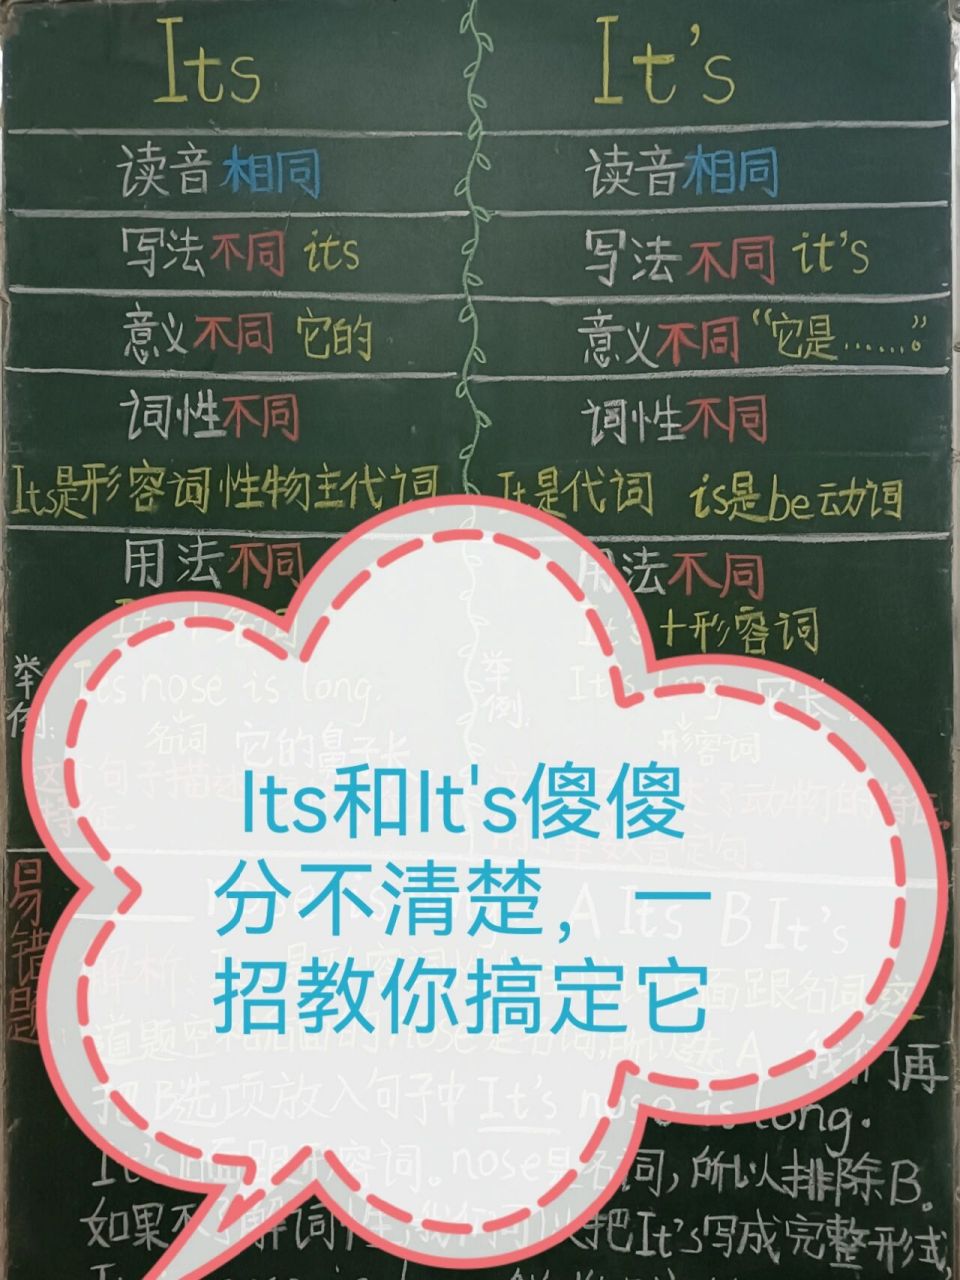 Its
It's
读音相同
读音相同
写法不同 its
写法不同 it's
意义不同 它的
意义不同 “它是……。”
词性不同
词性不同
Its是形容词性物主代词
It是代词 is是be动词
用法不同
用法不同
It's+形容词
举例:
Its nose is long.
名词 它的鼻子长
举例:
It's long 它长。
形容词
Its和It's傻傻
分不清楚，一
招教你搞定它
易错题
A Its B It's
解析
面跟名词,这
道题空格后面的nose是名词,所以选A 我们再
把B选项放入句子中 It's nose is long.
It's后面跟形容词。nose是名词,所以排除B。
如果不了解词性,我们可以把It's写成完整形式,